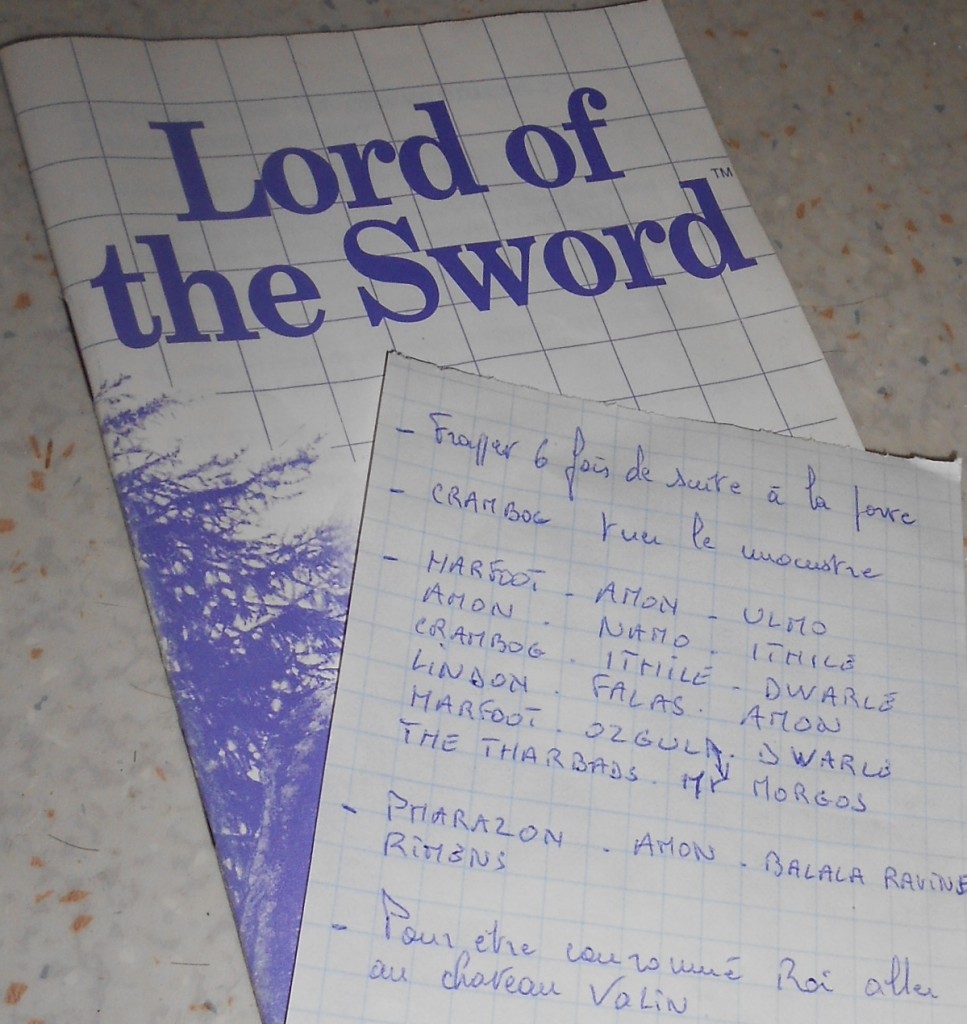 Lord of
the Sword™
- Frapper 6 fois de suite à la porte
- CRAMBOG tuer le monstre
- HARFOOT - AMON - ULMO
AMON . NAMO . ITHILE
CRAMBOG . ITHILE - DWARLE
LINDON . FALAS . AMON
HARFOOT . OZGUL . DWARLE
THE THARBADS . MORGOS
- PHARAZON . AMON . BALALA RAVINE
RIMENS
- Pour être couronné Roi aller
au chateau VALIN